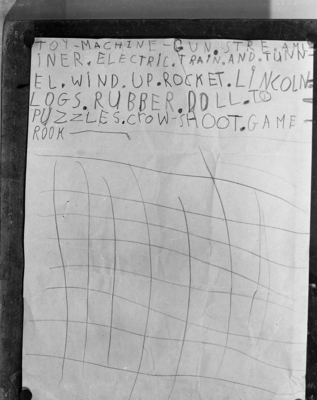 TOY-MACHINE-GUN.STRE.AML
INER.ELECTRIC.TRAIN.AND.TUNN-
EL.WIND.UP.ROCKET.LINCOLN-
LOGS.RUBBER.DOLL.TO
PUZZLES.CROW-SHOOT.GAME-
ROOK